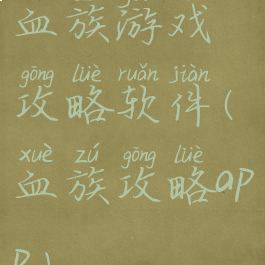 血族游戏
gōng lüè ruǎn jiàn
攻略软件(
xuè zú gōng lüè
血族攻略ap
p)